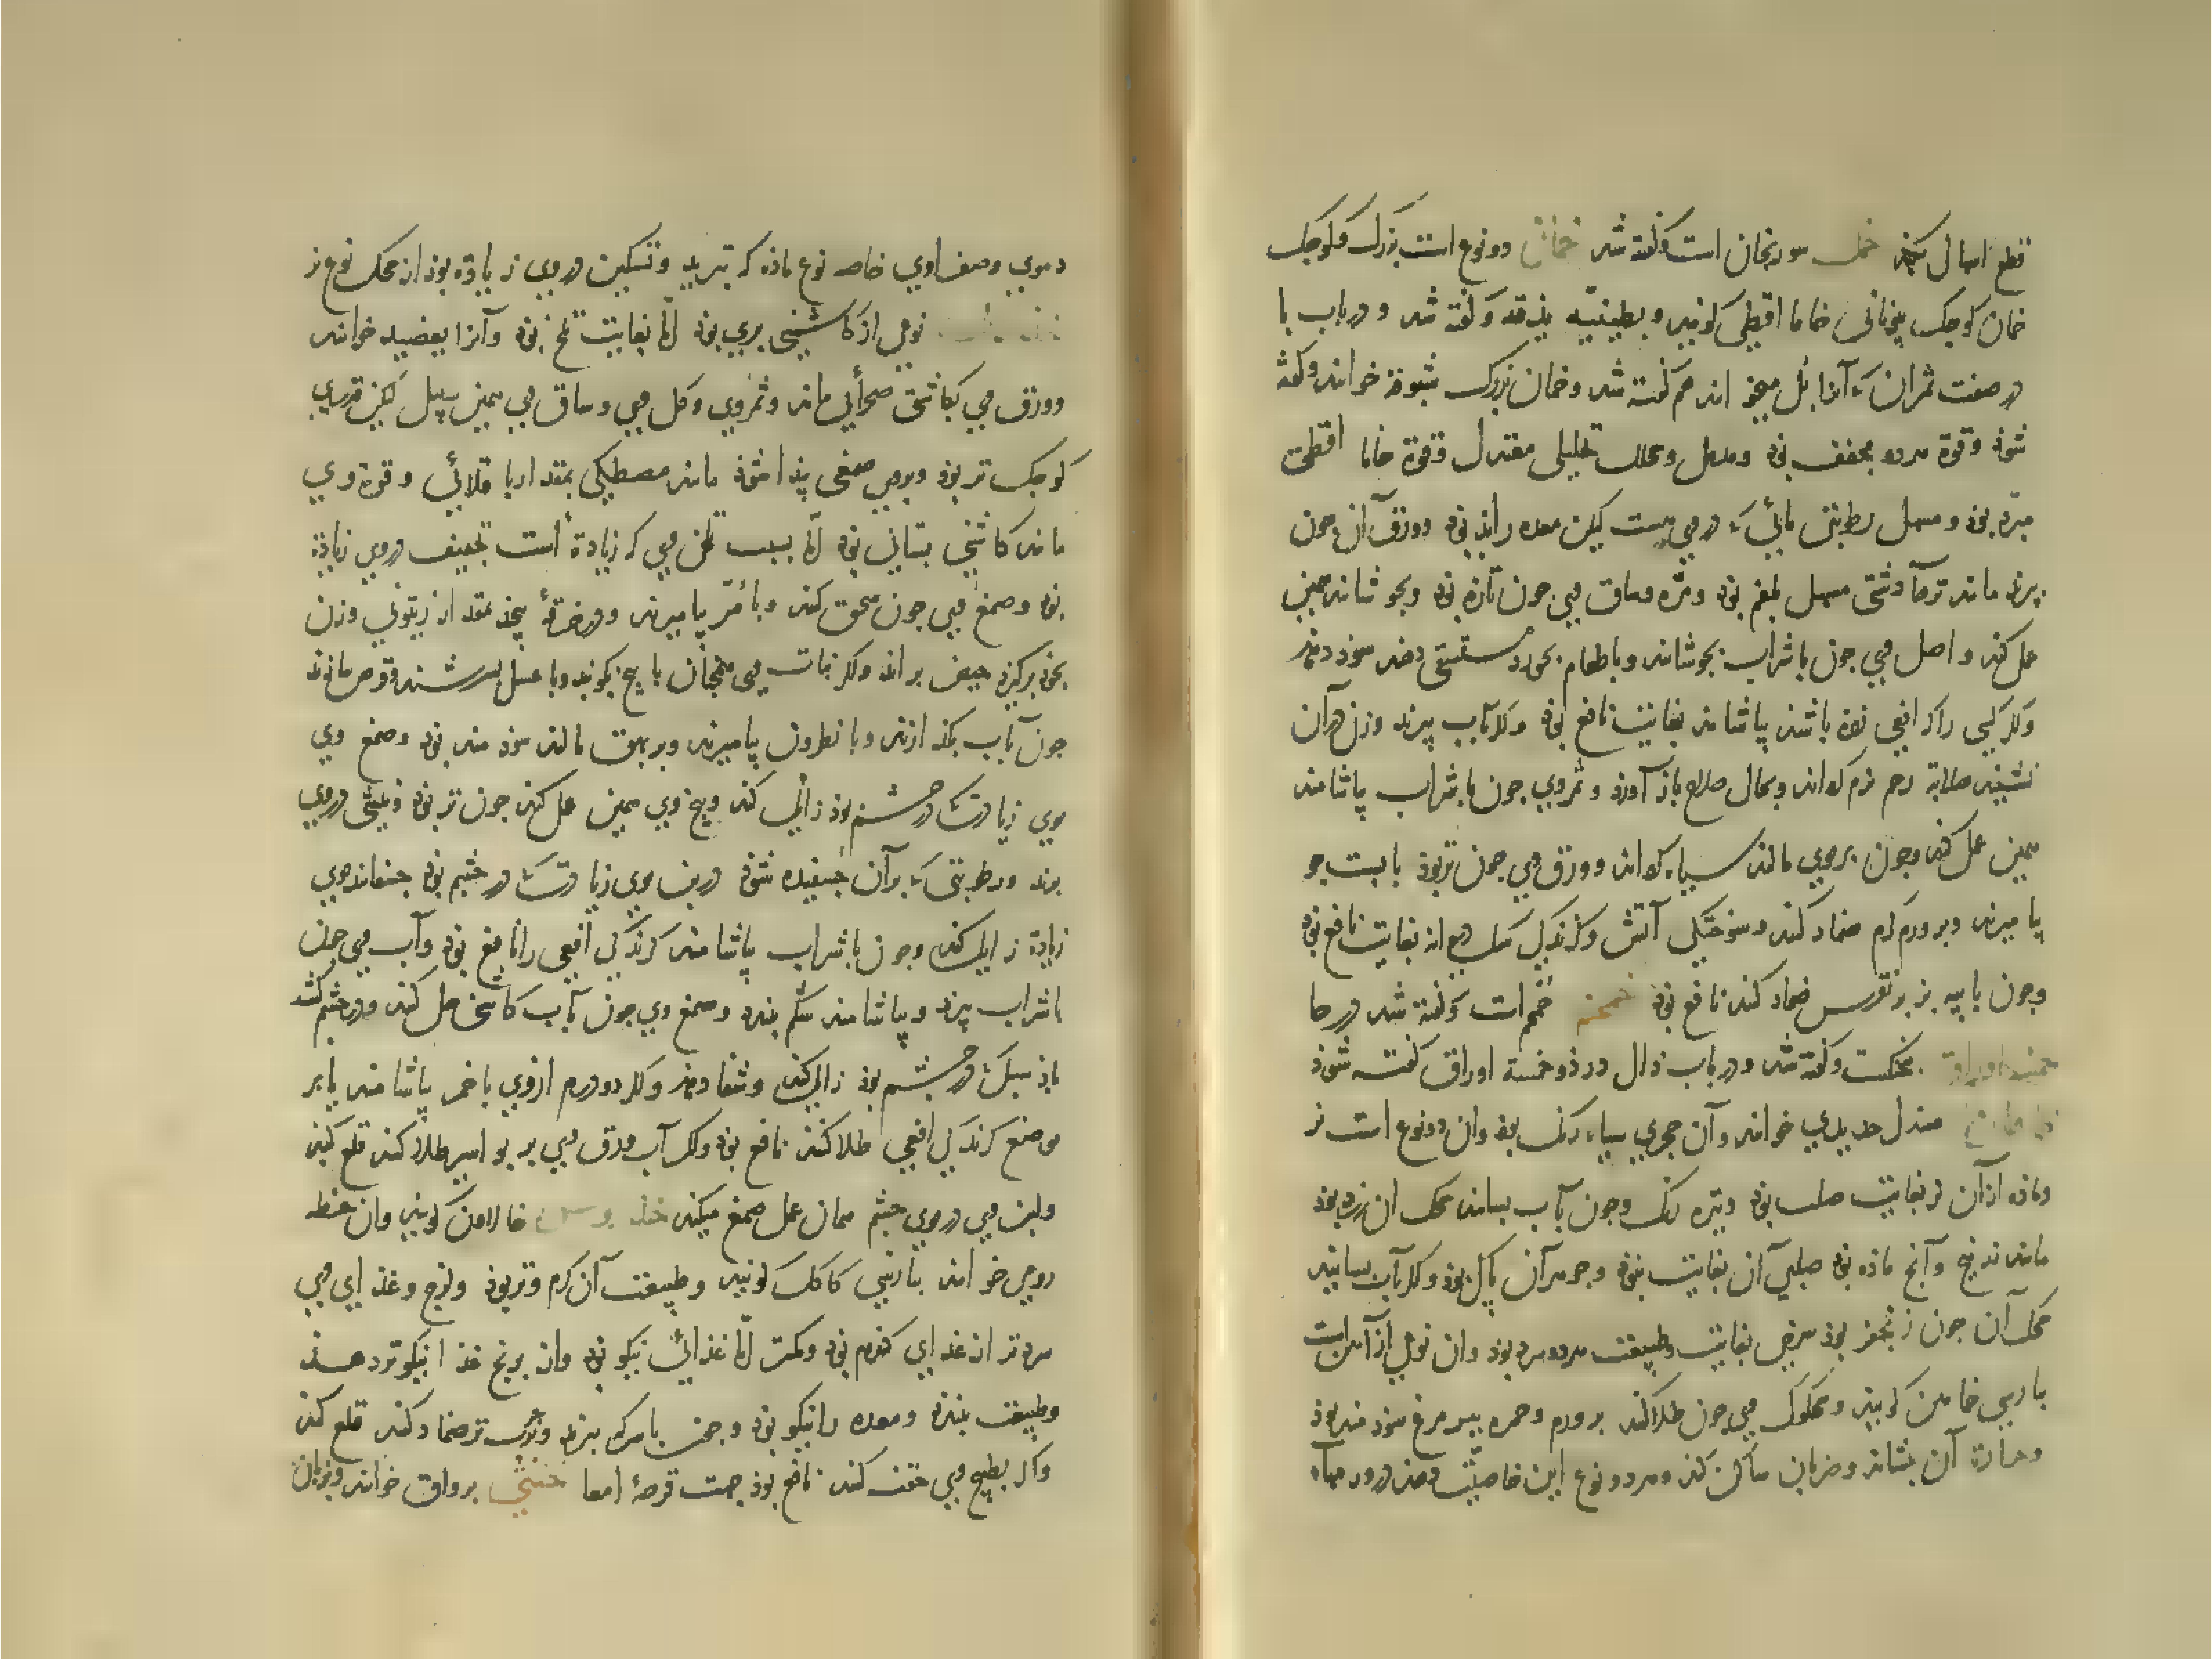 قطع اسهال کند خمل سورنجان است وکفته شد خمان دو نوع است بزرک وکوجک
خمان کوجک بیونانی خاما اقطی کویند و بطینیه یذقه وکفته شد و در باب با
در صفت ثمر آن که آنرا بل میخوانند هم کفته شد و خمان بزرک شبوقه خوانند وکفته
شوذ وقوة هر دو مجفف بوذ ومدمل ومحلل تحلیلی معتدل وقوة خاما اقطی
مبرد بوذ و مسهل رطوبتی مائی که در وی هست لیکن معده را بذ بوذ وورق آن جون
بپزند مانند ترهاء دشتی مسهل بلغم بوذ وتره وساق وی جون تازه بوذ وبجوشانند همین
عمل کند و اصل وی جون با شراب بجوشانند وبا طعام بخورد مستسقی دهند سوذ دهد
وکر کسی را که افعی زده باشد بیاشامند بغایت نافع بوذ وکر بآب بپزند وزن در آن
نشیند صلابة رحم نرم کرداند وبحال صلاح باز آورد و ثمر وی جون با شراب بیاشامند
همین عمل کند وجون بر موی مالند سیاه کرداند وورق وی جون تر بوذ با پست جو
بیامیزند وبر ورم کرم ضماد کنند وسوختکی آتش وکزندکی سک دیوانه بغایت نافع بوذ
وجون با پیه بز بر نقرس ضماد کنند نافع بوذ خمخم است کفته شد در حا
خمسة اوراق بنجنکشت وکفته شد ودر باب ذال در ذو خمسة اوراق کفته شوذ
صندل حدیدی خوانند وآن حجری سیاه رنک بوذ وان دو نوع است نر
وماذه از آن نر بغایت صلب بوذ وتیره رنک وجون بآب بسایند محک ان زرد بوذ
مانند زرنیخ وآنج ماذه بوذ صلبی آن بغایت نبوذ وجوهر آن بوذ وکر بآب بسایند
محک آن جون زنجفر بوذ سرخی بغایت وطبیعت هر دو سرد بوذ وان نوعی از آهن است
بپارسی خماهن کویند ومحکوک وی جون طلا کنند بر ورم وحمره ببر مرغ سوذ مند بوذ
وحرارت آن بنشاند وضربان ساکن کند وهر دو نوع این خاصیت دهند در ورمهاء
دموی وصفراوی خاصه نوع ماذه که تبرید وتسکین در وی زیاده بوذ از محک نوع نر
نوعی از کاشنی بری بوذ اما بغایت تلخ بوذ وآنرا یعضید خوانند
وورق وی بکاشنی صحرائی ماند وثمر وی وکل وی وساق وی همین سبیل لیکن قدری
کوجک تر بوذ وبروی صمغی پیدا شوذ مانند مصطکی بمقدار باقلائی وقوة وی
مانند کاشنی بستانی بوذ اما بسبب تلخی وی که زیادة است تجفیف در وی زیاده
بوذ وصمغ وی جون سحق کنند وبا مر بیامیزند ودر خرقۀ پیچند بمقدار زیتونی وزن
بخوذ برکیرد حیض براند وکر نبات وی همجنان با بیخ بکوبند وبا عسل بسرشند وقرص سازند
جون بآب بکذازند وبا نطرون بیامیزند وبر بهق مالند سوذ مند بوذ وصمغ وی
موی زیادت که در جشم بوذ زائل کند وبیخ وی همین عمل کند جون تر بوذ وبلیتی در وی
برند ورطوبتی که بر آن جسبیده شوذ در بن موی زیادت که در جشم بوذ جسفانند موی
زیادة زایل کند وجون با شراب بیاشامند کزندکی افعی را نافع بوذ وآب وی جون
با شراب بپزند وبیاشامند شکم ببندد وصمغ وی جون بآب کاسنی حل کنند ودر جشم کشند
باذ سبل که در جشم بوذ زایل کند وشفا دهد وکر دو درم از وی با خمر بیاشامند یا بر
موضع کزندکی افعی طلا کنند نافع بوذ وکر آب ورق وی بر بواسیر طلا کنند قلع کند
ولبن وی در موی جشم همان عمل صمغ میکند خالاون کویند وان حنطه
رومی خوانند بپارسی کاکل کویند وطبیعت آن کرم وتر بوذ ولزج وغذای وی
سرد تر از غذای کندم بوذ وکمتر اما غذائی نیکو بوذ وان برنج غذا نیکوتر دهد
وطبیعت ببندد ومعده را نیکو بوذ وجون با سرکه بپزند وبر جرب تر ضماد کنند قلع کند
وکر بطبیخ وی حقنه کنند نافع بوذ جهت قرحۀ امعا خنثی برواق خوانند وبزبان